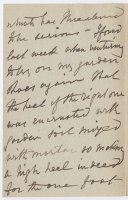 which has threatened
the serious - I found
last week when venturing
to try on my garden
shoes again that
the heel of the right one
was encrusted with
garden soil mixed
with mortar so making
a high heel indeed
for the one foot